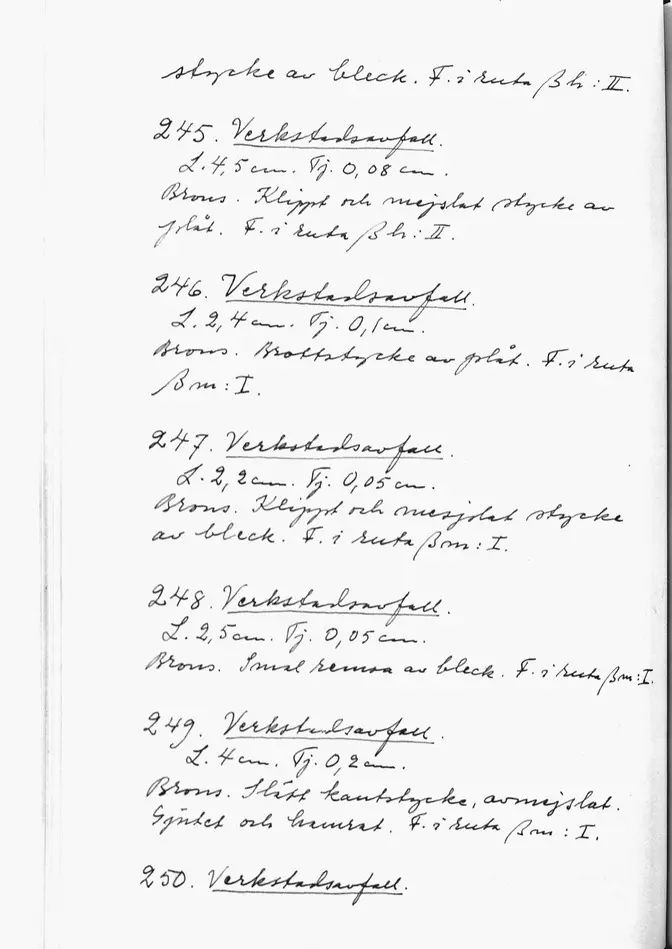 stycke av bleck. F. i ruta β h : II.
245. Verkstadsavfall.
L. 4,5 cm. Tj. 0,08 cm.
Brons. Klippt och mejslat stycke av
plåt. F. i ruta β h : II.
246. Verkstadsavfall.
L. 2,4 cm. Tj. 0,1 cm.
Brons. Brottstycke av plåt. F. i ruta
β m : I.
247. Verkstadsavfall.
L. 2,2 cm. Tj. 0,05 cm.
Brons. Klippt och mesjslat stycke
av bleck. F. i ruta β m : I.
248. Verkstadsavfall.
L. 2,5 cm. Tj. 0,05 cm.
Brons. Smal remsa av bleck. F. i ruta β m : I.
249. Verkstadsavfall.
L. 4 cm. Tj. 0,2 cm.
Brons. Slätt kantstycke, avmejslat.
Gjutet och hamrat. F. i ruta β m : I.
250. Verkstadsavfall.